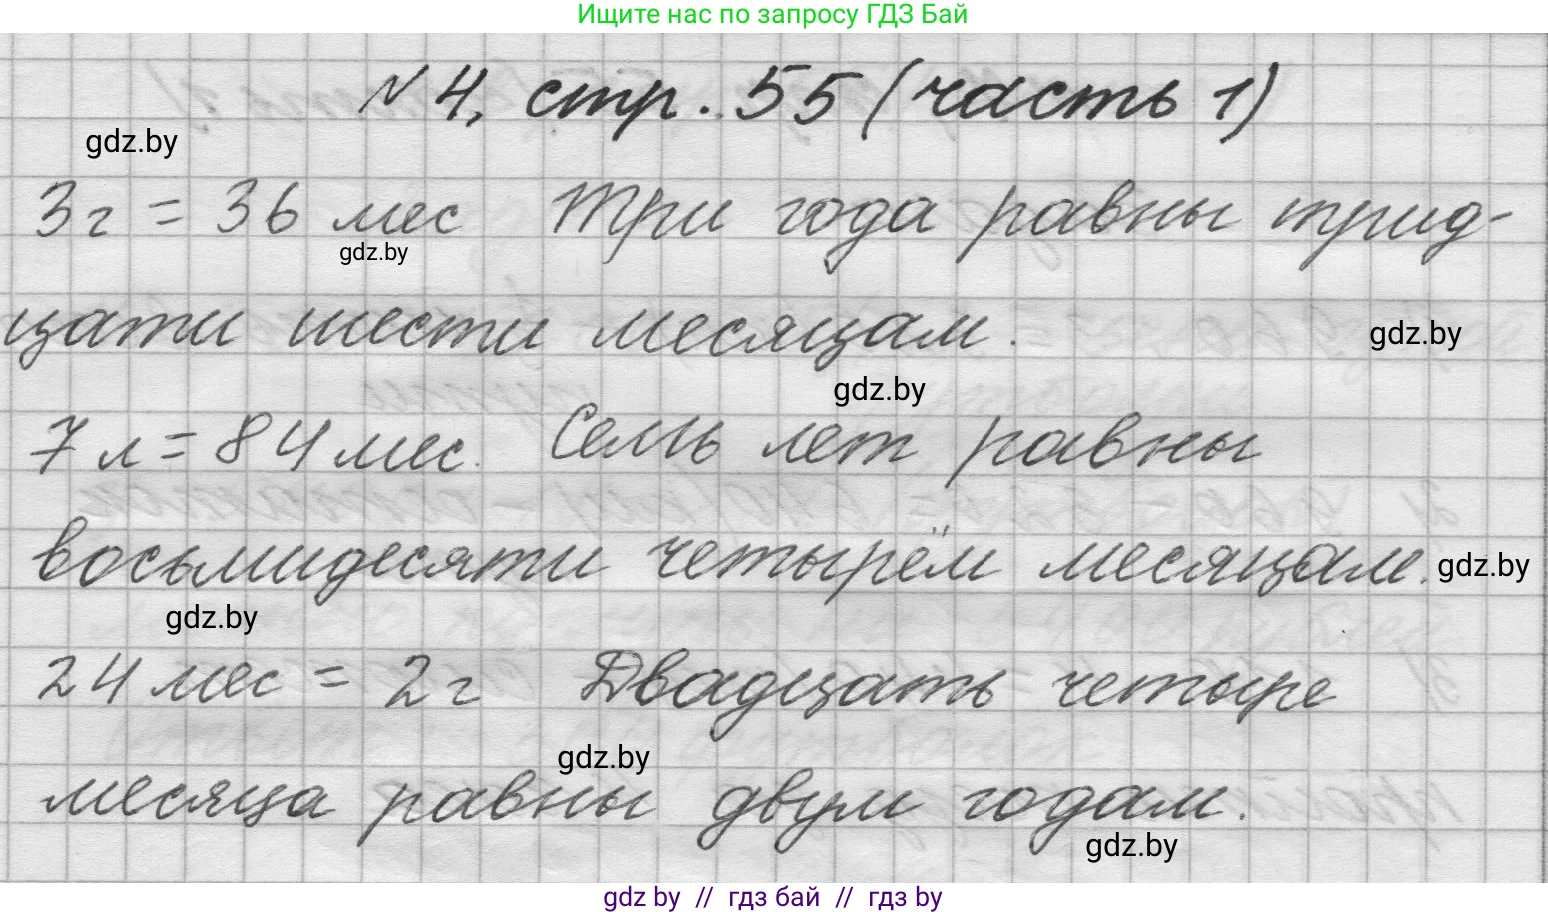 Ищите нас по запросу ГДЗ Бай
№4, стр. 55 (часть 1)
gdz.by
3г = 36 мес Три года равны трид-
gdz.by
цати шести месяцам.
gdz.by
gdz.by
7 л = 84 мес. Семь лет равны
восьмидесяти четырём месяцам.
gdz.by
gdz.by
24 мес = 2 г Двадцать четыре
gdz.by
месяца равны двум годам.
gdz.by
gdz by // гдз бай // гдз by